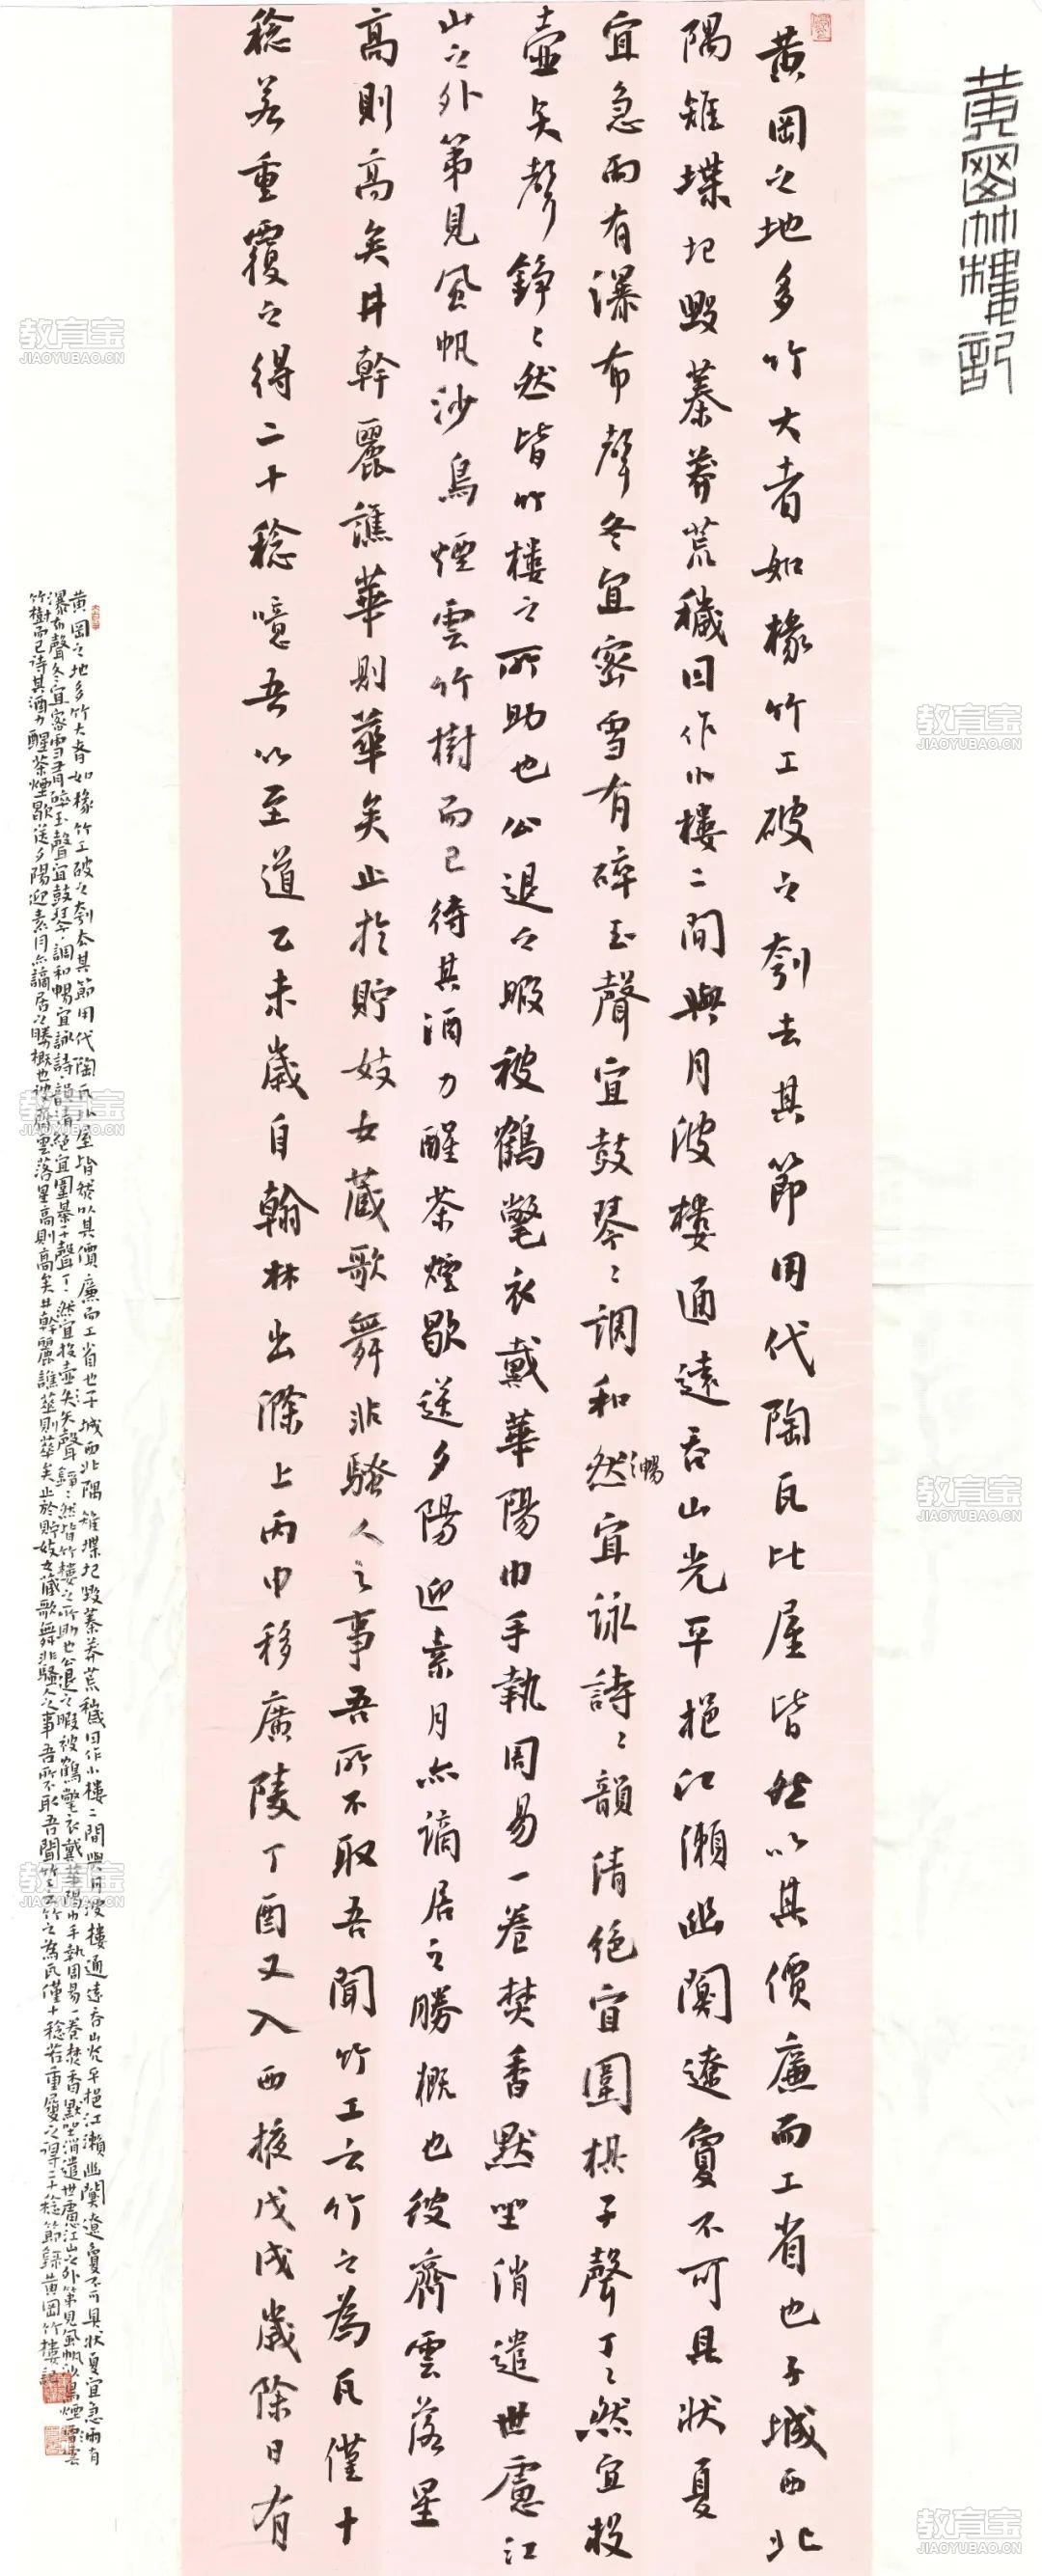 黄岡竹樓記
黄岡之地多竹大者如椽竹工破之刳去其節用代陶瓦比屋皆然以其價廉而工省也子城西北
隅雉堞圮毀蓁莽荒穢因作小樓二間與月波樓通遠吞山光平挹江瀨幽闃遼敻不可具狀夏
宜急雨有瀑布聲冬宜密雪有碎玉聲宜鼓琴〻調和然暢宜詠詩〻韻清絶宜圍棋子聲丁〻然宜投
壺矢聲錚〻然皆竹樓之所助也公退之暇被鶴氅衣戴華陽巾手執周易一卷焚香默坐消遣世慮江
山之外第見風帆沙鳥煙雲竹樹而已待其酒力醒茶煙歇送夕陽迎素月亦謫居之勝概也彼齊雲落星
高則高矣井幹麗譙華則華矣止於貯妓女藏歌舞非騷人之事吾所不取吾聞竹工云竹之為瓦僅十
稔若重覆之得二十稔噫吾以至道乙未歲自翰林出滁上丙申移廣陵丁酉又入西掖戊戌歲除日有
黄岡之地多竹大者如椽竹工破之刳去其節用代陶瓦比屋皆然以其價廉而工省也子城西北隅雉堞圮毀蓁莽荒穢因作小樓二間與月波樓通遠吞山光平挹江瀨幽闃遼敻不可具狀夏宜急雨有
瀑布聲冬宜密雪有碎玉聲宜鼓琴〻調和暢宜詠詩〻韻清絶宜圍棊子聲丁〻然宜投壺矢聲錚〻然皆竹樓之所助也公退之暇被鶴氅衣戴華陽巾手執周易一卷焚香默坐消遣世慮江山之外第見風帆沙鳥煙雲
竹樹而已待其酒力醒茶煙歇送夕陽迎素月亦謫居之勝概也彼齊雲落星高則高矣井幹麗譙華則華矣止於貯妓女藏歌舞非騷人之事吾所不取吾聞竹工云竹之為瓦僅十稔若重覆之得二十稔節錄黄岡竹樓記
教育宝
JIAOYUBAO.CN
教育宝
JIAOYUBAO.CN
教育宝
JIAOYUBAO.CN
教育宝
JIAOYUBAO.CN
教育宝
JIAOYUBAO.CN
教育宝
JIAOYUBAO.CN